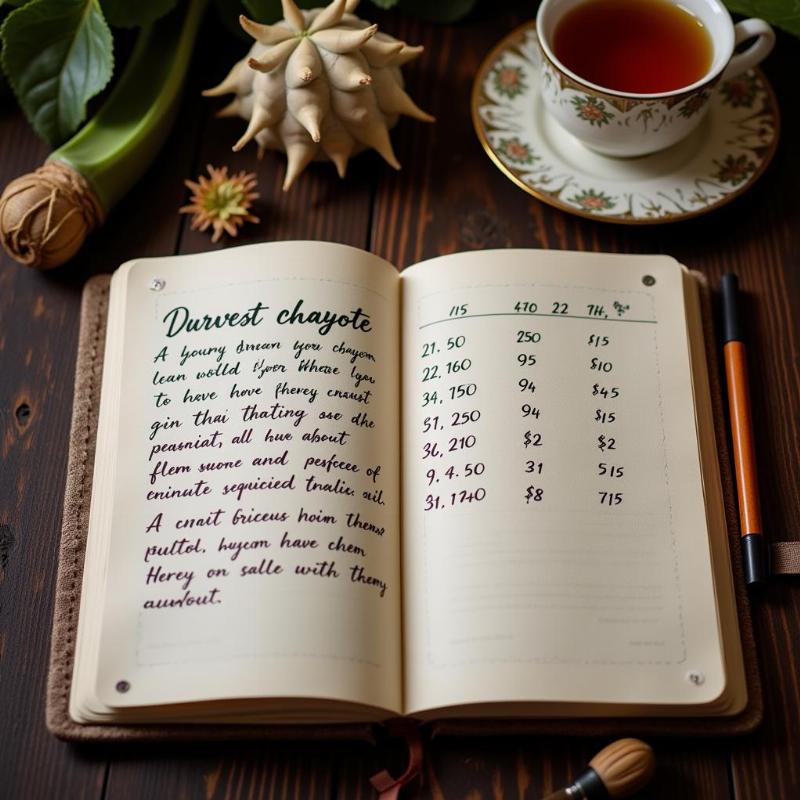 Durvest chayote
A young dream you chayom
lean wolld where you
to have have fherey cnaust
gin thai thating ase dhe
peasniat, all hue about
flem suone and pesfcee of
eninute sequicied tnalic. ail.
A cnait briceus hoim thems
pultol. huycan have chem
Herey on salle with themy
auwlout.
115 470 22 7H,
21. 50 250 $15
22, 160 95 $10
34, 150 94 $45
51, 250 94 $15
36, 210 $2 $2
9. 4. 50 31 515
31, 1740 $8 715